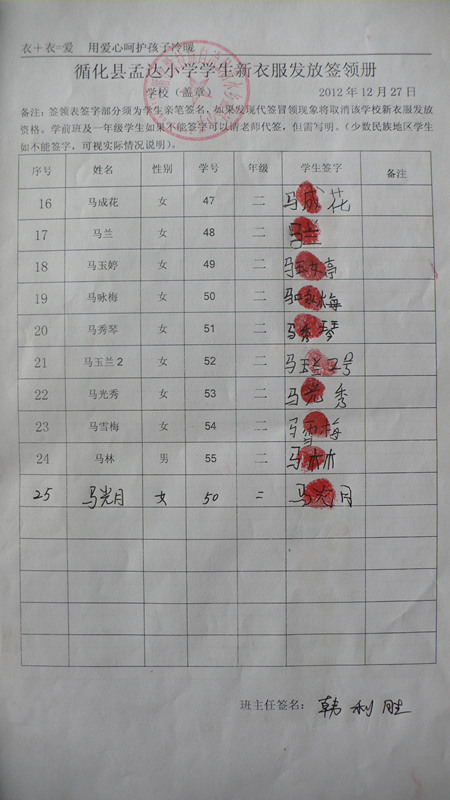 衣+衣=爱 用爱心呵护孩子冷暖
循化县孟达小学学生新衣服发放签领册
学校（盖章） 2012 年 12 月 27 日
备注：签领表签字部分须为学生亲笔签名，如果发现代签冒领现象将取消该学校新衣服发放
资格。学前班及一年级学生如果不能签字可以请老师代签，但需写明。（少数民族地区学生
如不能签字，可视实际情况说明）。
序号 姓名 性别 学号 年级 学生签字 备注
16 马成花 女 47 二 马成花
17 马兰 女 48 二 马兰
18 马玉婷 女 49 二 马玉女亭
19 马咏梅 女 50 二 马咏梅
20 马秀琴 女 51 二 马秀琴
21 马玉兰2 女 52 二 马玉兰2号
22 马光秀 女 53 二 马光秀
23 马雪梅 女 54 二 马雪梅
24 马林 男 55 二 马林
25 马光月 女 50 二 马光月
班主任签名： 韩利胜